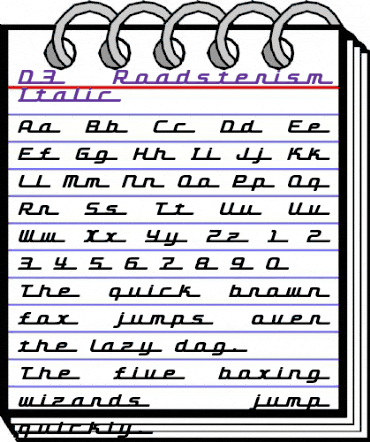 D3 Roadsterism
Italic
Aa Bb Cc Dd Ee
Ef Gg Hh Ii Jj Kk
Ll Mm Nn Oo Pp Qq
Rr Ss Tt Uu Vv
Ww Xx Yy Zz 1 2
3 4 5 6 7 8 9 0
The quick brown
fox jumps over
the lazy dog.
The five boxing
wizards jump
quickly.